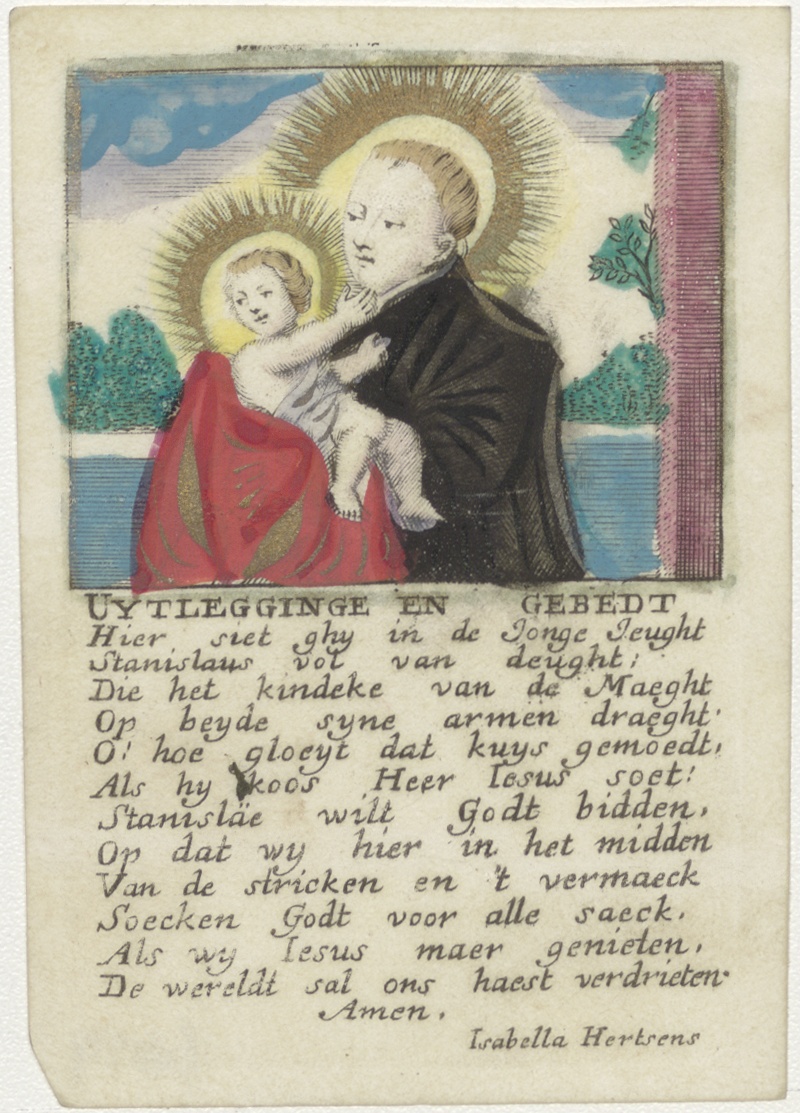 UYTLEGGINGE EN GEBEDT
Hier siet ghy in de Jonge Jeught
Stanislaus vol van deught;
Die het kindeke van de Maeght
Op beyde syne armen draeght.
O! hoe gloeyt dat kuys gemoedt,
Als hy koos Heer Iesus soet!
Stanisläe wilt Godt bidden,
Op dat wy hier in het midden
Van de stricken en 't vermaeck
Soecken Godt voor alle saeck.
Als wy Iesus maer genieten,
De wereldt sal ons haest verdrieten.
Amen.
Isabella Hertsens